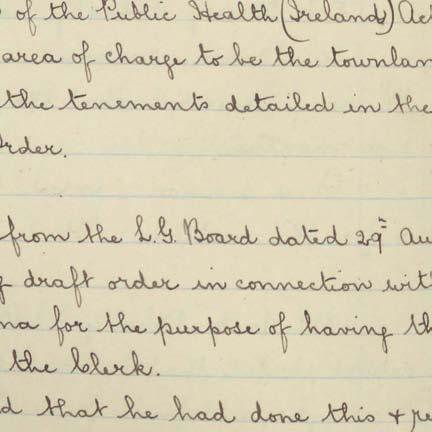 of the Public Health (Ireland) Act
area of charge to be the townlan
the tenements detailed in the
rder.
from the L.G. Board dated 29th Au
g draft order in connection wit
na for the purpose of having th
the Clerk.
d that he had done this & re